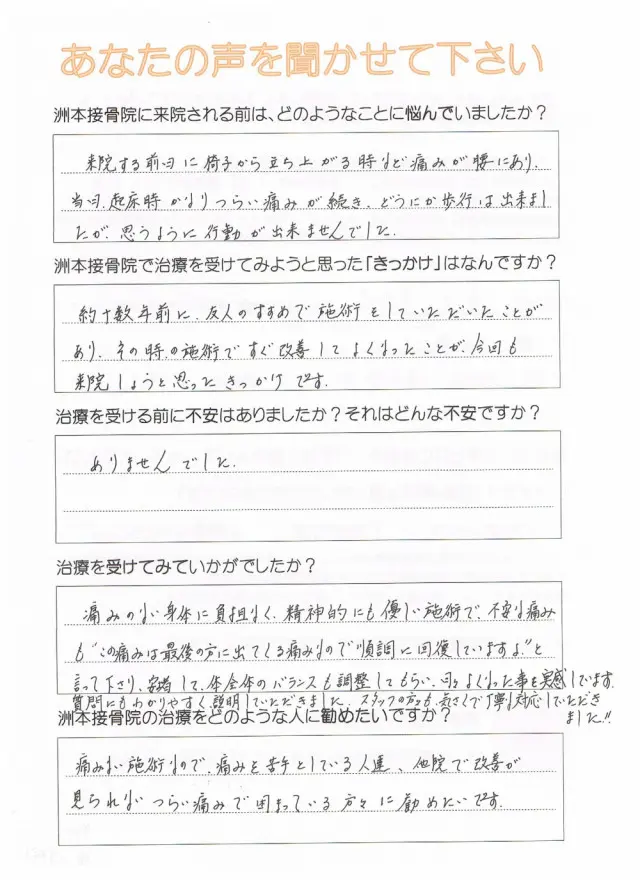 あなたの声を聞かせて下さい
洲本接骨院に来院される前は、どのようなことに悩んでいましたか？
来院する前日に椅子から立ち上がる時など痛みが腰にあり、
当日、起床時かなりつらい痛みが続き、どうにか歩行は出来まし
たが、思うように行動が出来ませんでした。
洲本接骨院で治療を受けてみようと思った「きっかけ」はなんですか？
約十数年前に、友人のすすめで施術をしていただいたことが
あり、その時の施術ですぐ改善してよくなったことが、今回も
来院しようと思ったきっかけです。
治療を受ける前に不安はありましたか？それはどんな不安ですか？
ありませんでした。
治療を受けてみていかがでしたか？
痛みのない身体に負担なく、精神的にも優しい施術で、不安な痛み
も"この痛みは最後の方に出てくる痛みなので順調に回復していますよ"と
言って下さり、安心して、体全体のバランスも調整してもらい、日々よくなった事を実感しています。
質問にもわかりやすく説明していただきました。スタッフの方も、気さくで丁寧な対応していただき
ました!!
洲本接骨院の治療をどのような人に勧めたいですか？
痛みない施術なので、痛みを苦手としている人達、他院で改善が
見られないつらい痛みで困まっている方々に勧めたいです。